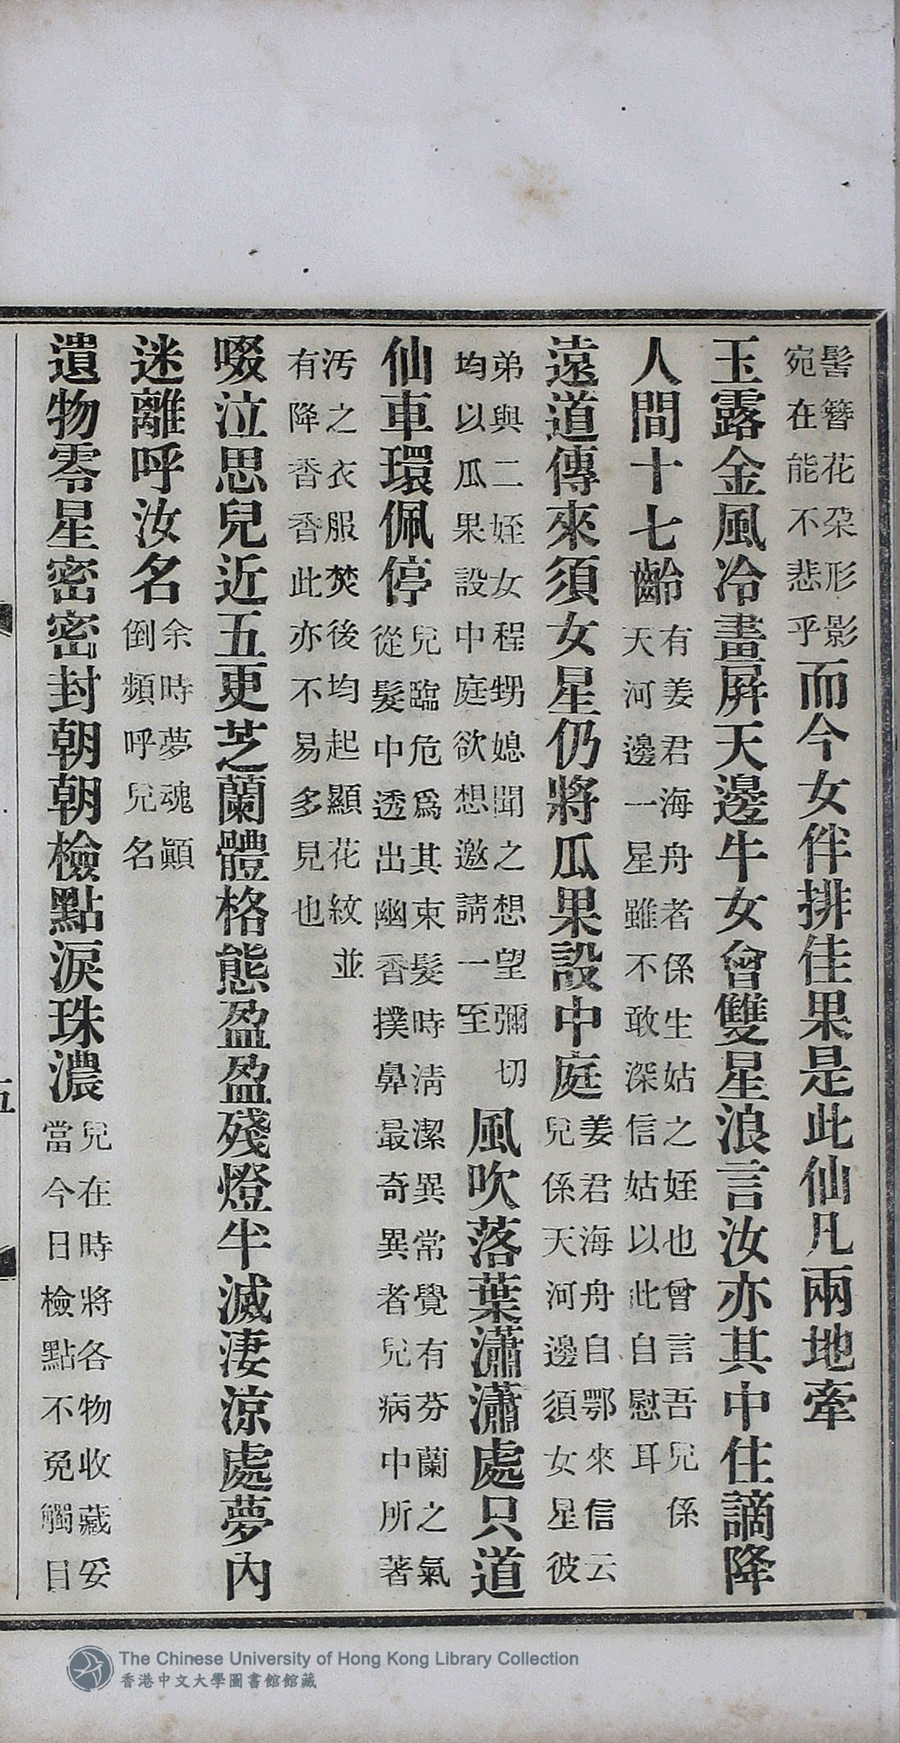 髻簪花朶形影
宛在能不悲乎而今女伴排佳果是此仙凡兩地牽
玉露金風冷畫屏天邊牛女會雙星浪言汝亦其中住謫降
人間十七齡有姜君海舟者係生姑之姪也曾言吾兒係
天河邊一星雖不敢深信姑以此自慰耳
遠道傳來須女星仍將瓜果設中庭姜君海舟自鄂來信云
兒係天河邊須女星彼
弟與二姪女程甥媳聞之想望彌切
均以瓜果設中庭欲想邀請一至風吹落葉瀟瀟處只道
仙車環佩停兒臨危爲其束髮時清潔異常覺有芬蘭之氣
從髮中透出幽香撲鼻最奇異者兒病中所著
汚之衣服焚後均起顯花紋並
有降香香此亦不易多見也
啜泣思兒近五更芝蘭體格態盈盈殘燈半滅淒涼處夢內
迷離呼汝名余時夢魂顚
倒頻呼兒名
遺物零星密密封朝朝檢點淚珠濃兒在時將各物收藏妥
當今日檢點不免觸目
五
The Chinese University of Hong Kong Library Collection
香港中文大學圖書館館藏